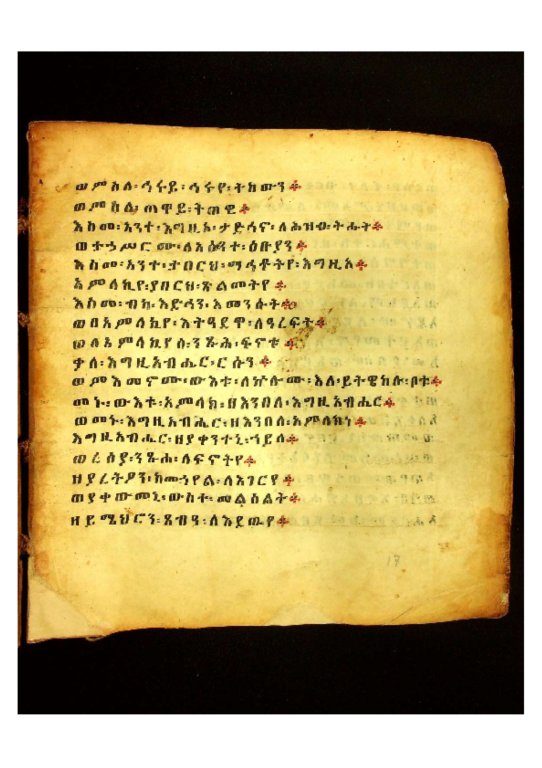 ወምስለ፡ኅሩይ፡ኅሩየ፡ትከውን።
ወምስለ፡ጠዋይ፡ትጠዊ።
እስመ፡አንተ፡እግዚኦ፡ታድኅኖ፡ለሕዝብ፡ትሑት።
ወተኃሥሮሙ፡ለአዕይንተ፡ዕቡያን።
እስመ፡አንተ፡ታበርህ፡ማኅቶትየ፡እግዚኦ።
አምላኪየ፡ያበርህ፡ጽልመትየ።
እስመ፡ብከ፡እድኅን፡እመንሱት።
ወበአምላኪየ፡እትዓደዋ፡ለዓረፍት።
ወለአምላኪየሰ፡ንጹሕ፡ፍኖቱ።
ቃለ፡እግዚአብሔር፡ርሱን።
ወምእመኖሙ፡ውእቱ፡ለኵሎሙ፡እለ፡ይትዌከሉ፡ቦቱ።
መኑ፡ውእቱ፡አምላክ፡ዘእንበለ፡እግዚአብሔር።
ወመኑ፡እግዚአብሔር፡ዘእንበለ፡አምላክነ።
እግዚአብሔር፡ዘያቀንተኒ፡ኀይለ።
ወረሰያ፡ንጹሐ፡ለፍኖትየ።
ዘያረትዖን፡ከመ፡ኃየል፡ለእገርየ።
ወያቀውመኒ፡ውስተ፡መልዕልት።
ዘይሜህሮን፡ጸብዓ፡ለእደዊየ።
17